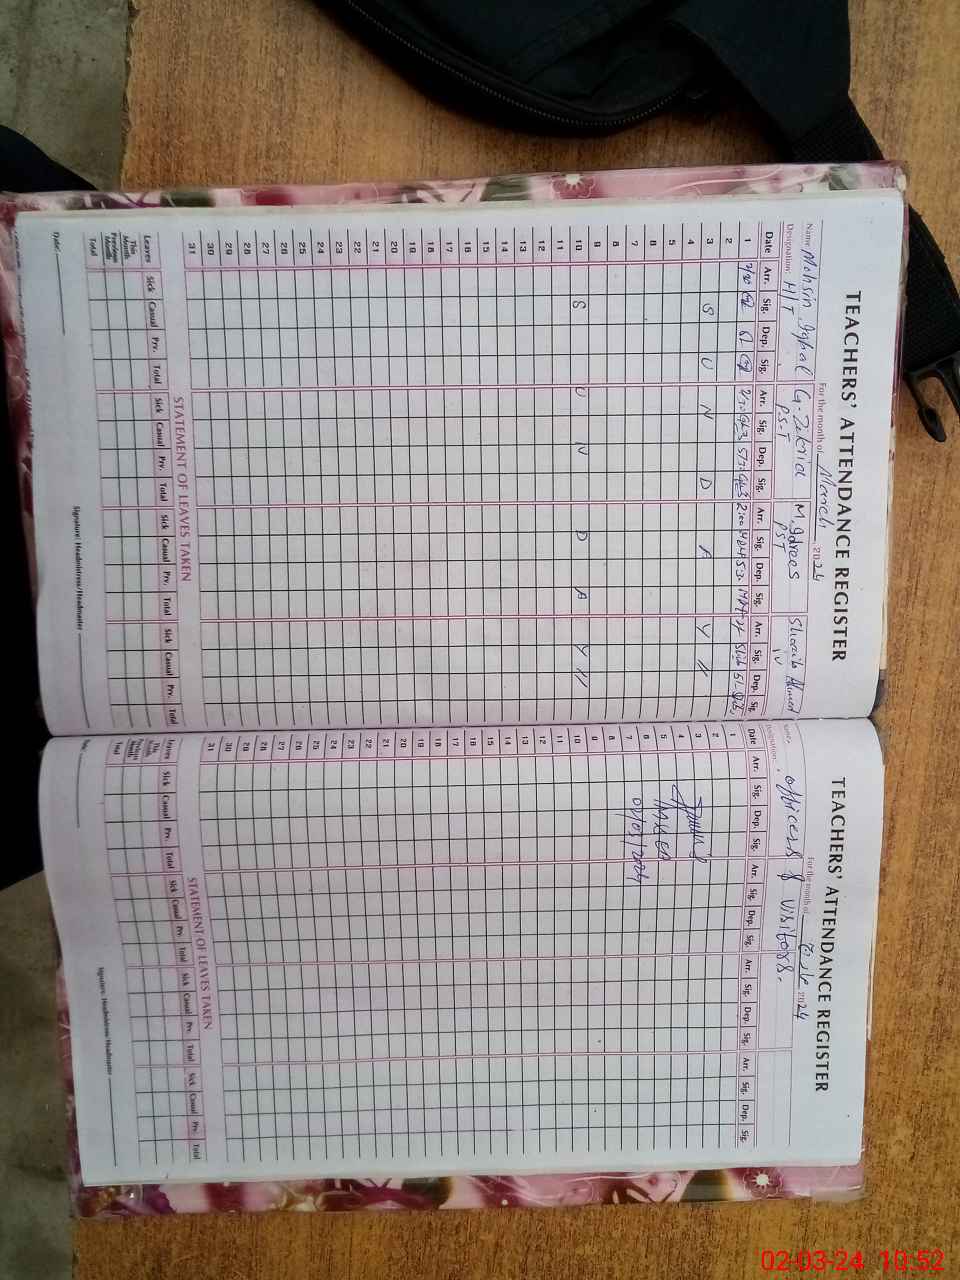 TEACHERS' ATTENDANCE REGISTER
For the month of March 2024
Name Mohsin Iqbal G. Zakria M. Idrees Shoaib Ahmed
Designation: H/T PST PST
Date Arr. Sig. Dep. Sig. Arr. Sig. Dep. Sig. Arr. Sig. Dep. Sig. Arr. Sig. Dep. Sig.
1
2
3 S U N D A Y
4
5
6
7
8
9
10 S U N D A Y
11
12
13
14
15
16
17
18
19
20
21
22
23
24
25
26
27
28
29
30
31
STATEMENT OF LEAVES TAKEN
Leaves Sick Casual Prv. Total Sick Casual Prv. Total Sick Casual Prv. Total Sick Casual Prv. Total
This Month
Previous Month
Total
Date: Signature: Headmistress/Headmaster
TEACHERS' ATTENDANCE REGISTER
For the month of 2024
Name. officers & visitors.
Designation:
Date Arr. Sig. Dep. Sig. Arr. Sig. Dep. Sig. Arr. Sig. Dep. Sig. Arr. Sig. Dep. Sig.
1
2
3
4
5
6
7 02/03/2024
8
9
10
11
12
13
14
15
16
17
18
19
20
21
22
23
24
25
26
27
28
29
30
31
STATEMENT OF LEAVES TAKEN
Leaves Sick Casual Prv. Total Sick Casual Prv. Total Sick Casual Prv. Total Sick Casual Prv. Total
This Month
Previous Month
Total
Date: Signature: Headmistress/Headmaster
02-03-24 10:52